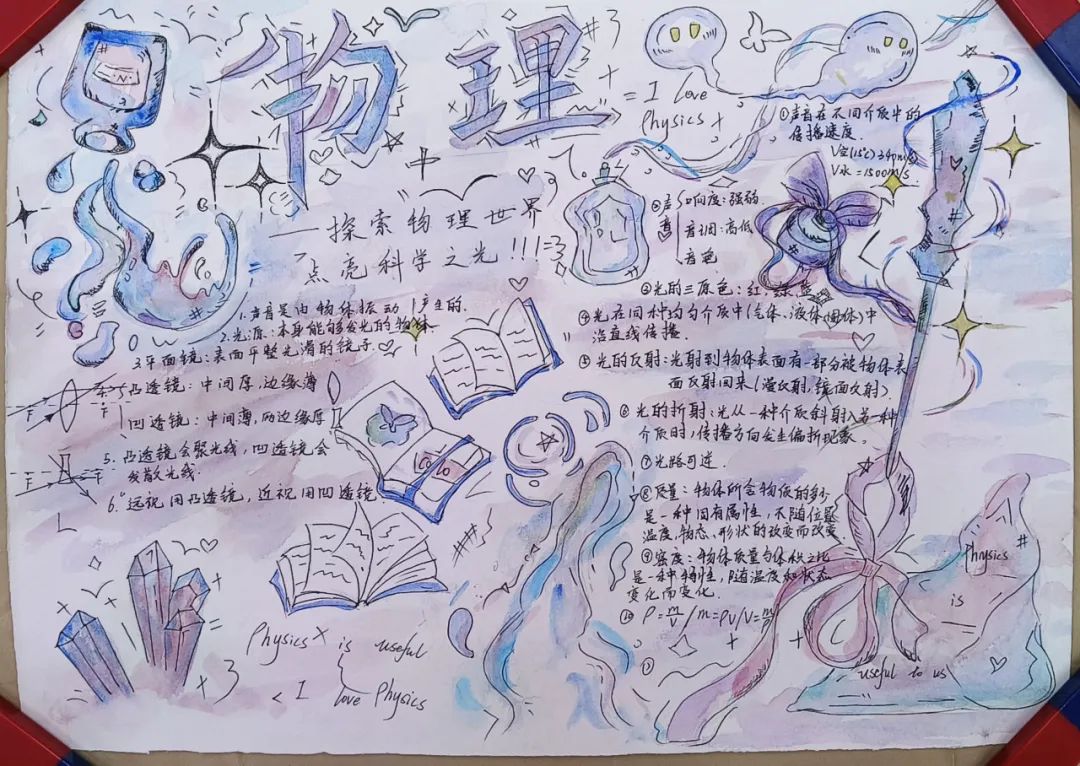 物理
= I love
Physics +
—探索物理世界
点亮科学之光!!!
1.声音是由物体振动产生的.
2.光源:本身能够发光的物体
3.平面镜:表面平整光滑的镜子
4.凸透镜:中间厚,边缘薄
凹透镜:中间薄,两边缘厚
5.凸透镜会聚光线,凹透镜会
发散光线.
6.远视用凸透镜,近视用凹透镜
F
F
①声音在不同介质中的
传播速度.
V空(15℃)340m/s
V水=1500m/s
②声音
响度:强弱.
音调:高低
音色
③光的三原色:红 绿 蓝
④光在同种均匀介质中(气体、液体、固体)中
沿直线传播.
⑤光的反射:光射到物体表面有一部分被物体表
面反射回来(漫反射,镜面反射).
⑥光的折射:光从一种介质斜射入另一种
介质时,传播方向发生偏折现象。
⑦光路可逆.
⑧质量:物体所含物质的多少
是一种固有属性,不随位置
温度,物态、形状的改变而改变
⑨密度:物体质量与体积之比
是一种特性,随温度和状态
变化而变化.
⑩ρ=m/V / m=ρV / V=m/ρ
Physics is useful
< I love Physics
Physics
is
useful to us